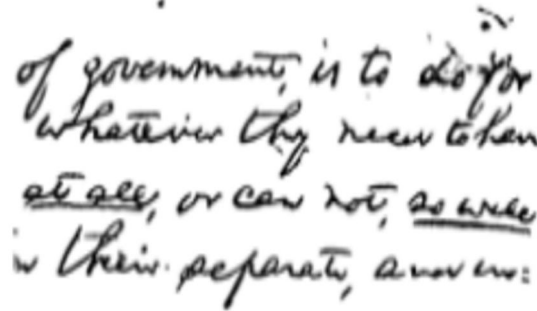 of government, is to do for
whatever they need to have
at all, or can not, so well
in their separate, and in: